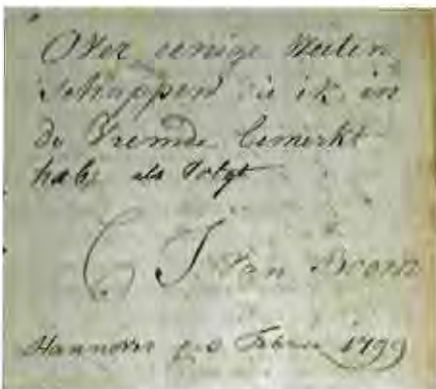 Over eenige Weeten
schappen die ik in
de Vremde bemerkt
habe als volgt
C J Van
Hannover Febru 1799